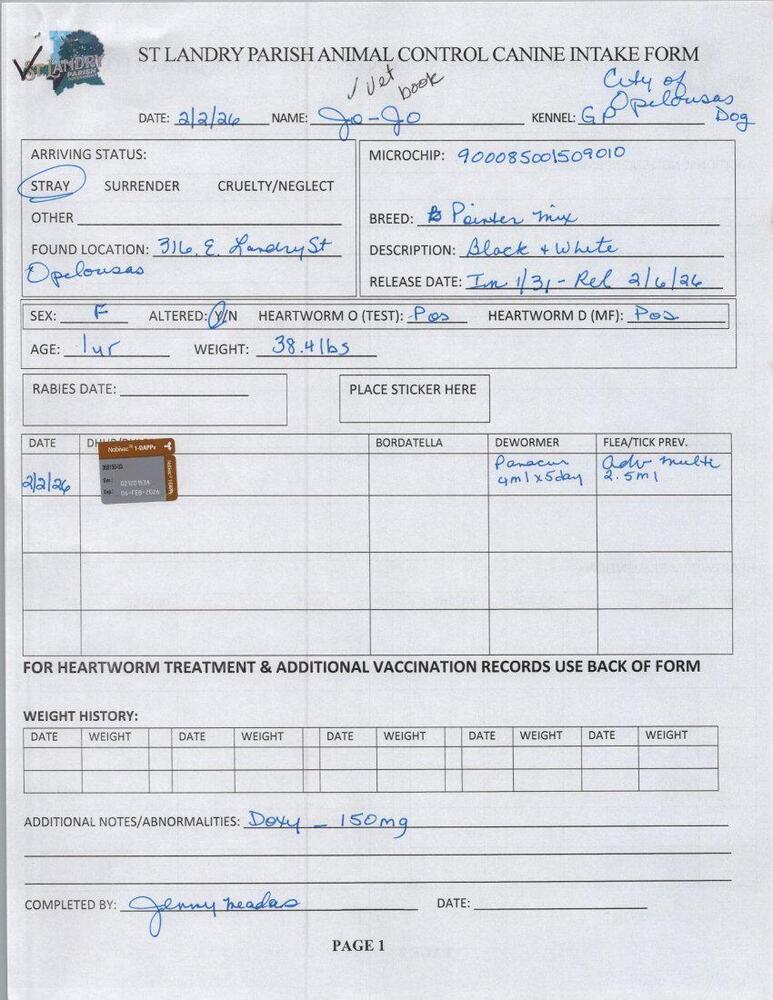 ST LANDRY
PARISH
ST LANDRY PARISH ANIMAL CONTROL CANINE INTAKE FORM
✓ Vet book
City of Opelousas Dog
DATE: 2/2/26 NAME: Jo-Jo KENNEL: GP
ARRIVING STATUS:
STRAY SURRENDER CRUELTY/NEGLECT
OTHER
FOUND LOCATION: 316. E. Landry St
Opelousas
MICROCHIP: 900085001509010
BREED: Pointer mix
DESCRIPTION: Black + White
RELEASE DATE: In 1/31 - Rel 2/6/26
SEX: F ALTERED: Y/N HEARTWORM O (TEST): Pos HEARTWORM D (MF): Pos
AGE: 1yr WEIGHT: 38.4 lbs
RABIES DATE:
PLACE STICKER HERE
DATE BORDATELLA DEWORMER FLEA/TICK PREV.
2/2/26
Nobivac® 1-DAPPv
02120153A
06-FEB-2026
Panacur
4ml x 5day
adv multi
2.5ml
FOR HEARTWORM TREATMENT & ADDITIONAL VACCINATION RECORDS USE BACK OF FORM
WEIGHT HISTORY:
DATE WEIGHT DATE WEIGHT DATE WEIGHT DATE WEIGHT DATE WEIGHT
ADDITIONAL NOTES/ABNORMALITIES: Doxy - 150mg
COMPLETED BY: Jenny Meadas DATE:
PAGE 1